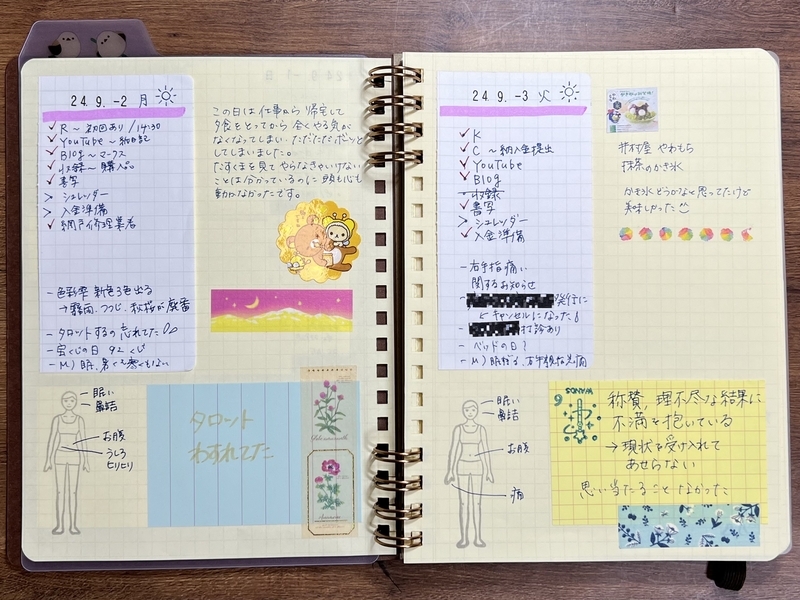 24.9.-2 月
✓ R ~ 初回あり / 14:30
✓ YouTube ~ 納品記
✓ Blog ~ マークス
✓ 収録 ~ 購入品
✓ 書写
> シュレッダー
> 入金準備
✓ 網戸修理業者
- 色彩雫 新色3色出る
→ 霧雨、つつじ、秋桜が廃番
- タロットするの忘れてた
- 宝くじの日 92 くじ
- M) 眠、暑くも寒くもない
この日は仕事から帰宅して
夕食をとってから全くやる気が
なくなってしまい、ただただボーッと
してしまいました。
たすくを見てやらなきゃいけない
ことは分かっているのに頭も心も
動かなかったです。
眠い
鼻詰
お腹
うしろ
ヒリヒリ
タロット
わすれてた
24.9.-3 火
✓ K
✓ C ~ 納入金提出
✓ YouTube
✓ Blog
- 収録
✓ 書写
> シュレッダー
✓ 入金準備
- 右手指痛い
関するお知らせ
発信に
キャンセルになった
打診あり
- ベッドの日?
- M) 眠
井村屋 やわもち
抹茶のかき氷
かき氷どうかなと思ってたけど
美味しかった
眠い
鼻詰
お腹
痛
6
WANDS
称賛、理不尽な結果に
不満を抱いている
→ 現状を受け入れて
あせらない
思い当たることなかった